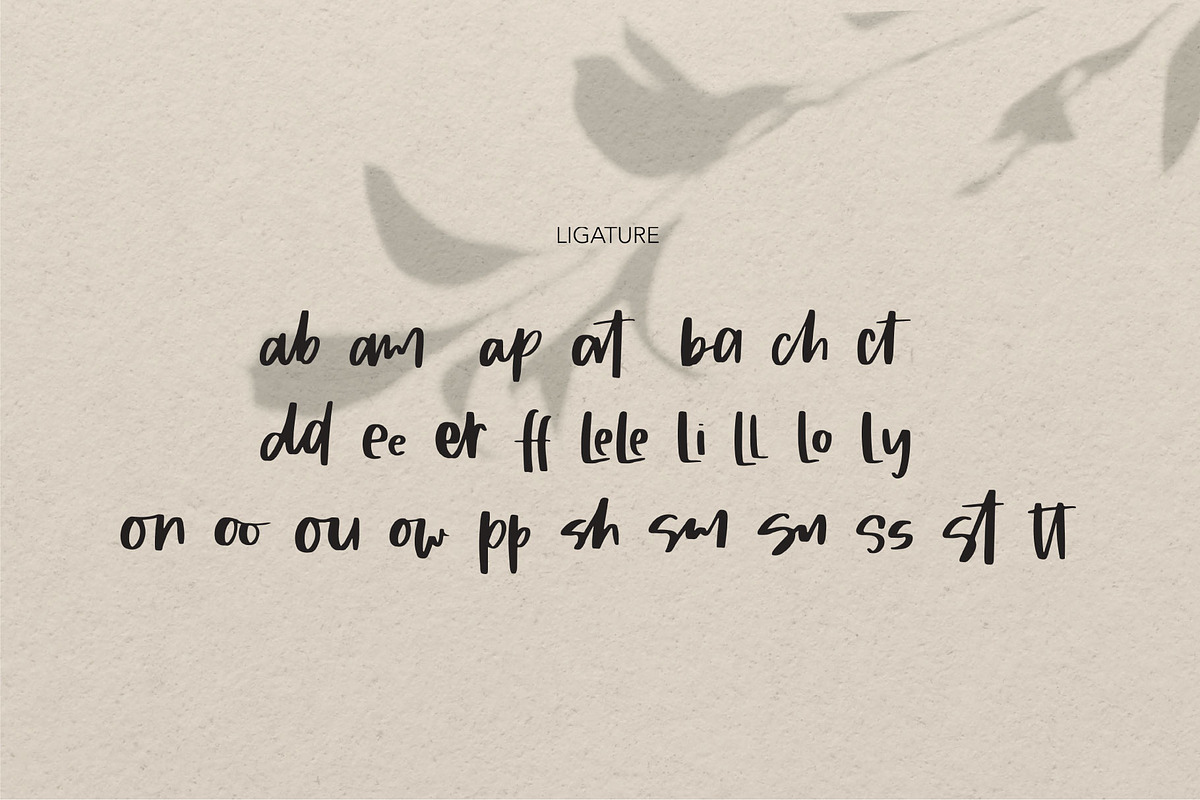 LIGATURE
ab am ap at ba ch ct
dd ee er ff lele li ll lo ly
on oo ou ow pp sh sm sn ss st tt